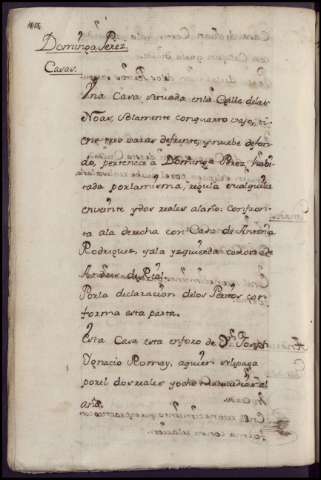 Dominga Perez
Casas.
Una Casa situada en la Calle de las
solamente con quarto vajo, ti-
ene tres varas de frente, y nuebe de fon-
do, pertenece a Dominga Perez havi-
tada por la misma, regula su alquiler
en veinte y dos reales al año: Confron-
ta a la derecha con Casa de Antonia
Rodriguez, y a la yzquierda con otra de
Por la declaracion de los Peritos con-
forma esta parta.
Esta Casa esta en foro de Dn. Joseph
Ygnacio Romay, a quien se le paga
por el dos reales y ocho maravedises al
año.